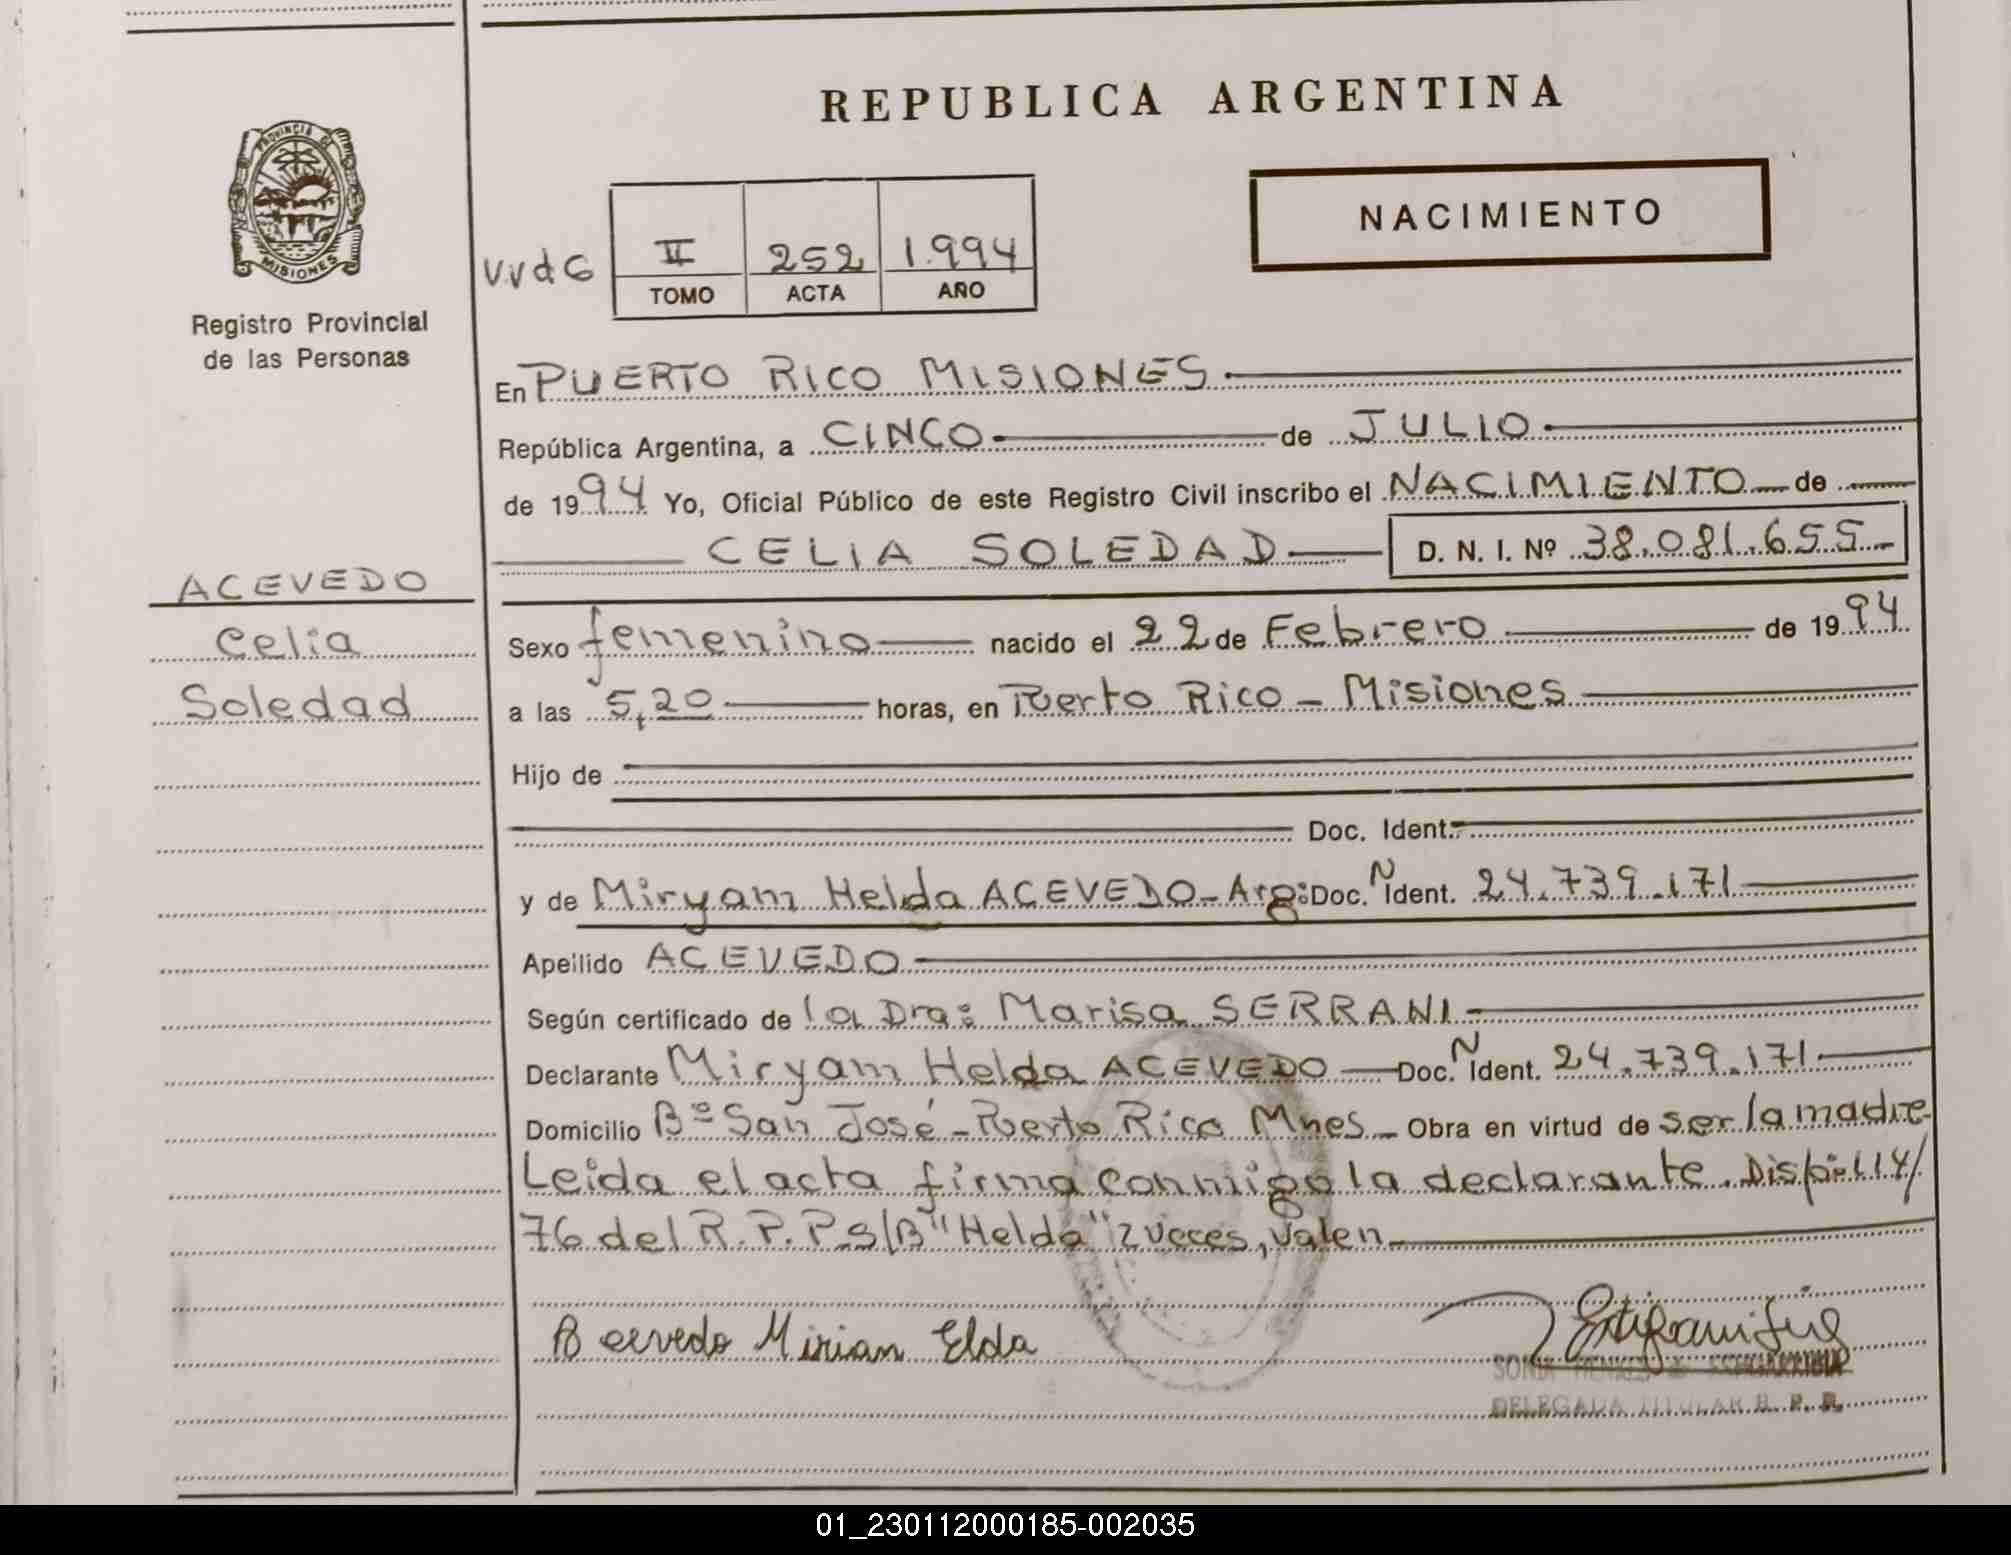 REPUBLICA ARGENTINA
PROVINCIA DE
MISIONES
Registro Provincial
de las Personas
NACIMIENTO
V.V d G
II 252 1.994
TOMO ACTA AÑO
En PUERTO RICO MISIONES
República Argentina, a CINCO de JULIO
de 1994 Yo, Oficial Público de este Registro Civil inscribo el NACIMIENTO de
CELIA SOLEDAD D. N. I. Nº 38.081.655
ACEVEDO
Celia
Soledad
Sexo femenino nacido el 22 de Febrero de 1994
a las 5,20 horas, en Puerto Rico - Misiones
Hijo de
Doc. Ident.
y de Miryam Helda ACEVEDO - Arg: Doc. N Ident. 24.739.171
Apellido ACEVEDO
Según certificado de la Dra: Marisa SERRANI
Declarante Miryam Helda ACEVEDO Doc. N Ident. 24.739.171
Domicilio Bº San José - Puerto Rico Mnes - Obra en virtud de ser la madre
Leida el acta firma conmigo la declarante. Disp: 114/
76 del R.P.P. S/B "Helda" 2 veces, Valen
Acevedo Mirian Elda
SONIA
DELEGADA TITULAR R. P. P.
01_230112000185-002035